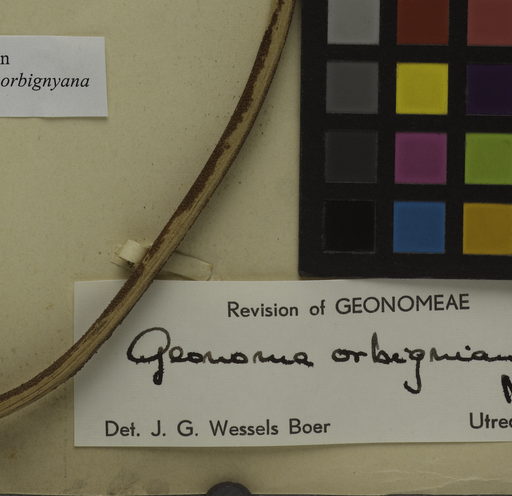 n
orbignyana
Revision of GEONOMEAE
Geonoma orbignian
N
Det. J. G. Wessels Boer
Utrec